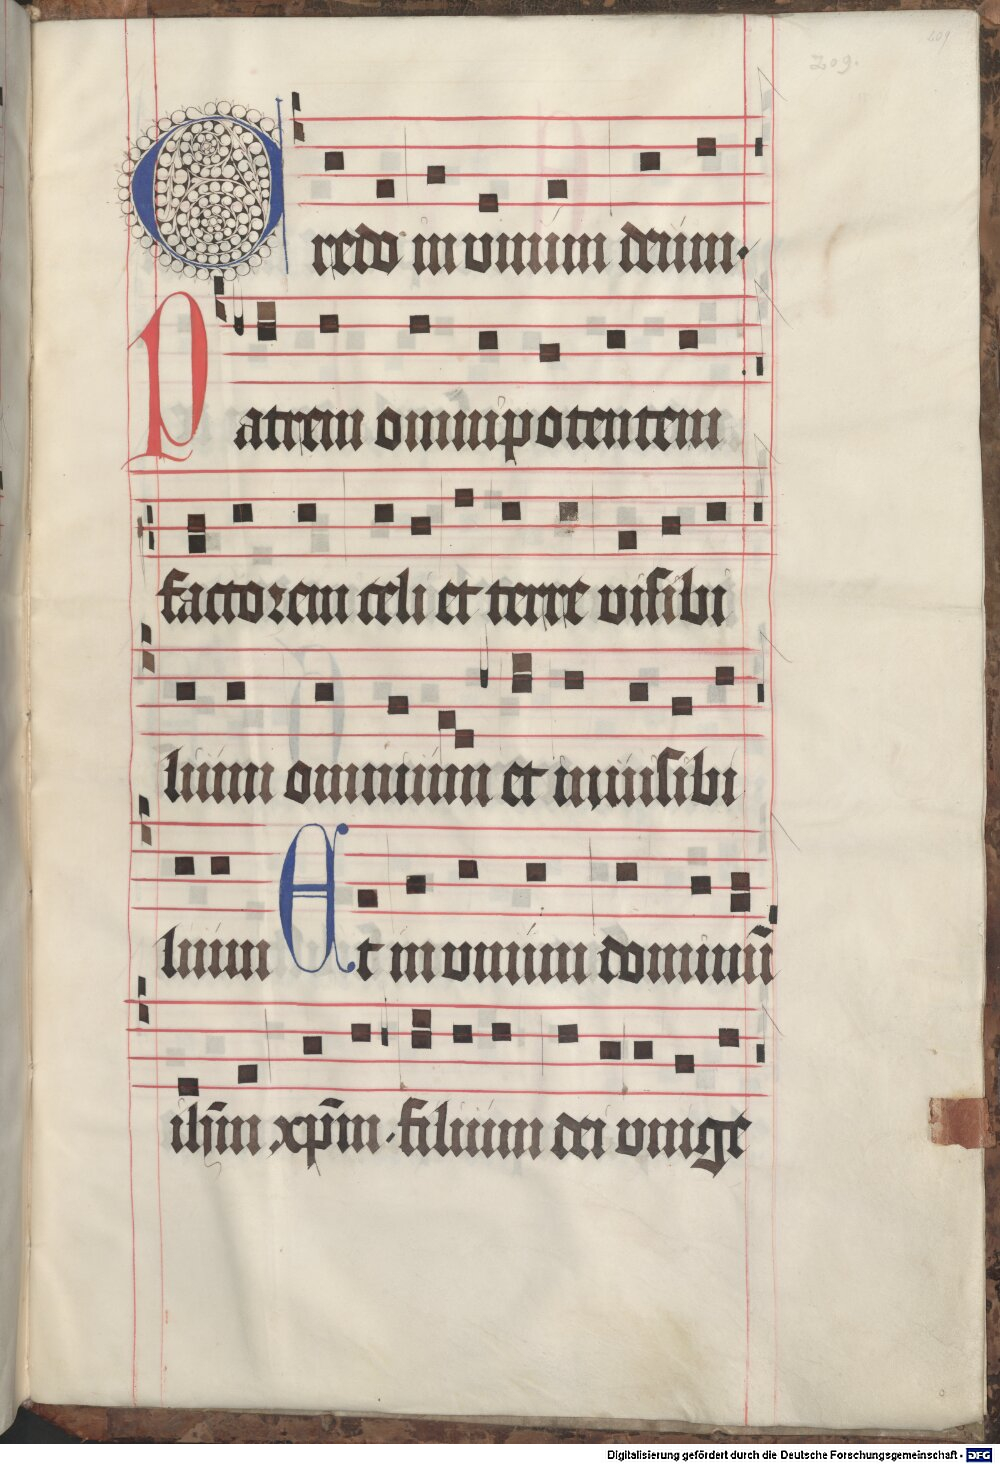 209
209.
Credo in vnum deum.
Patrem omnipotentem
factorem celi et terre visibi
lium omnium et inuisibi
lium Et in vnum dominū
ihm̄ xpm̄. filium dei vnige
Digitalisierung gefördert durch die Deutsche Forschungsgemeinschaft - DFG